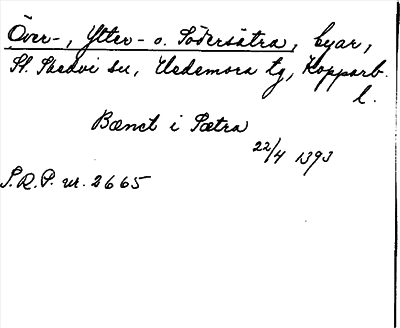 Över-, Ytter- o. Södersätra, byar,
St. Skedvi sn, Hedemora tg, Kopparb.
l.
Bænct i Sætra
22/4 1393
S.R.P. nr. 2665